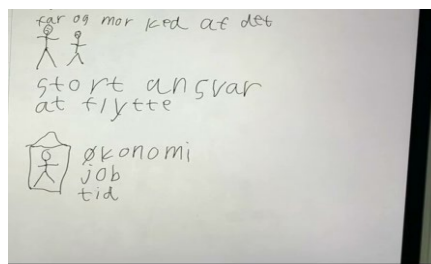 far og mor ked af det
stort ansvar
at flytte
økonomi
job
tid